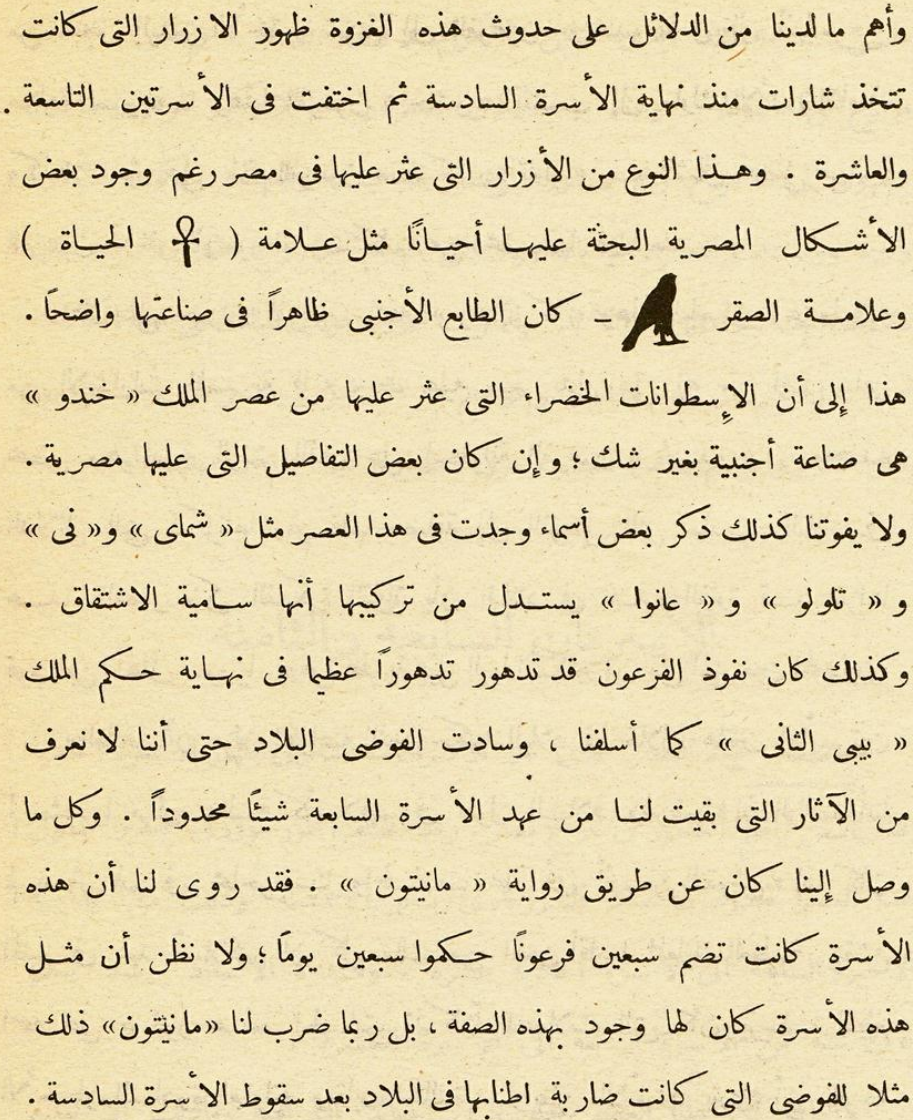 وأهم ما لدينا من الدلائل على حدوث هذه الغزوة ظهور الازرار التى كانت
تتخذ شارات منذ نهاية الأسرة السادسة ثم اختفت فى الأسرتين التاسعة .
والعاشرة . وهذا النوع من الأزرار التى عثر عليها فى مصر رغم وجود بعض
الأشكال المصرية البحتة عليها أحيانًا مثل علامة ( ☥ الحياة )
وعلامة الصقر – كان الطابع الأجنبى ظاهراً فى صناعتها واضحاً .
هذا إلى أن الإسطوانات الخضراء التى عثر عليها من عصر الملك « خندو »
هى صناعة أجنبية بغير شك ؛ وإن كان بعض التفاصيل التى عليها مصرية .
ولا يفوتنا كذلك ذكر بعض أسماء وجدت فى هذا العصر مثل « شماى » و« نى »
و « تلولو » و « عانوا » يستدل من تركيبها أنها سامية الاشتقاق .
وكذلك كان نفوذ الفرعون قد تدهور تدهوراً عظيما فى نهاية حكم الملك
« بيبى الثانى » كما أسلفنا ، وسادت الفوضى البلاد حتى أننا لا نعرف
من الآثار التى بقيت لنا من عهد الأسرة السابعة شيئًا محدوداً . وكل ما
وصل إلينا كان عن طريق رواية « مانيتون » . فقد روى لنا أن هذه
الأسرة كانت تضم سبعين فرعونًا حكموا سبعين يومًا ؛ ولا نظن أن مثل
هذه الأسرة كان لها وجود بهذه الصفة ، بل ربما ضرب لنا «مانيتون» ذلك
مثلا للفوضى التى كانت ضاربة اطنابها فى البلاد بعد سقوط الأسرة السادسة .